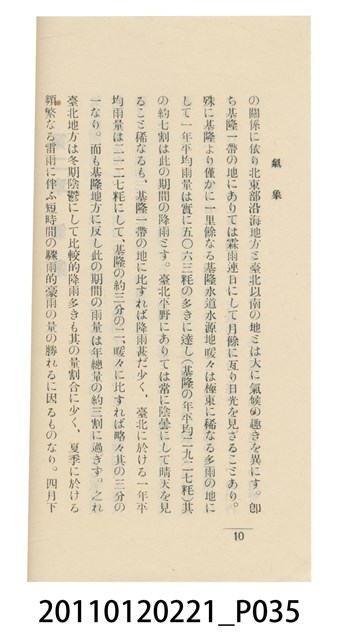 氣象
の關係に依り北東部沿海地方と臺北以南の地とは大に氣候の趣きを異にす。卽
ち基隆一帶の地にありては霖雨連日にして月餘に亙り日光を見ざることあり。
殊に基隆より僅かに一里餘なる基隆水道水源地暖々は極東に稀なる多雨の地に
して一年平均雨量は實に五〇六三粍の多きに達し(基隆の年平均二九二七粍)其
の約七割は此の期間の降雨とす。臺北平野にありては常に陰曇にして晴天を見
ること稀なるも、基隆一帶の地に比すれば降雨甚だ少く、臺北に於ける一年平
均雨量は二一二七粍にして、基隆の約三分の二、暖々に比すれば略々其の三分の
一なり。而も基隆地方に反し此の期間の雨量は年總量の約三割に過ぎず。之れ
臺北地方は冬期陰鬱にして比較的降雨多きも其の量割合に少く、夏季に於ける
頻繁なる雷雨に伴ふ短時間の驟雨的豪雨の量の勝れるに因るものなり。四月下
10
20110120221_P035